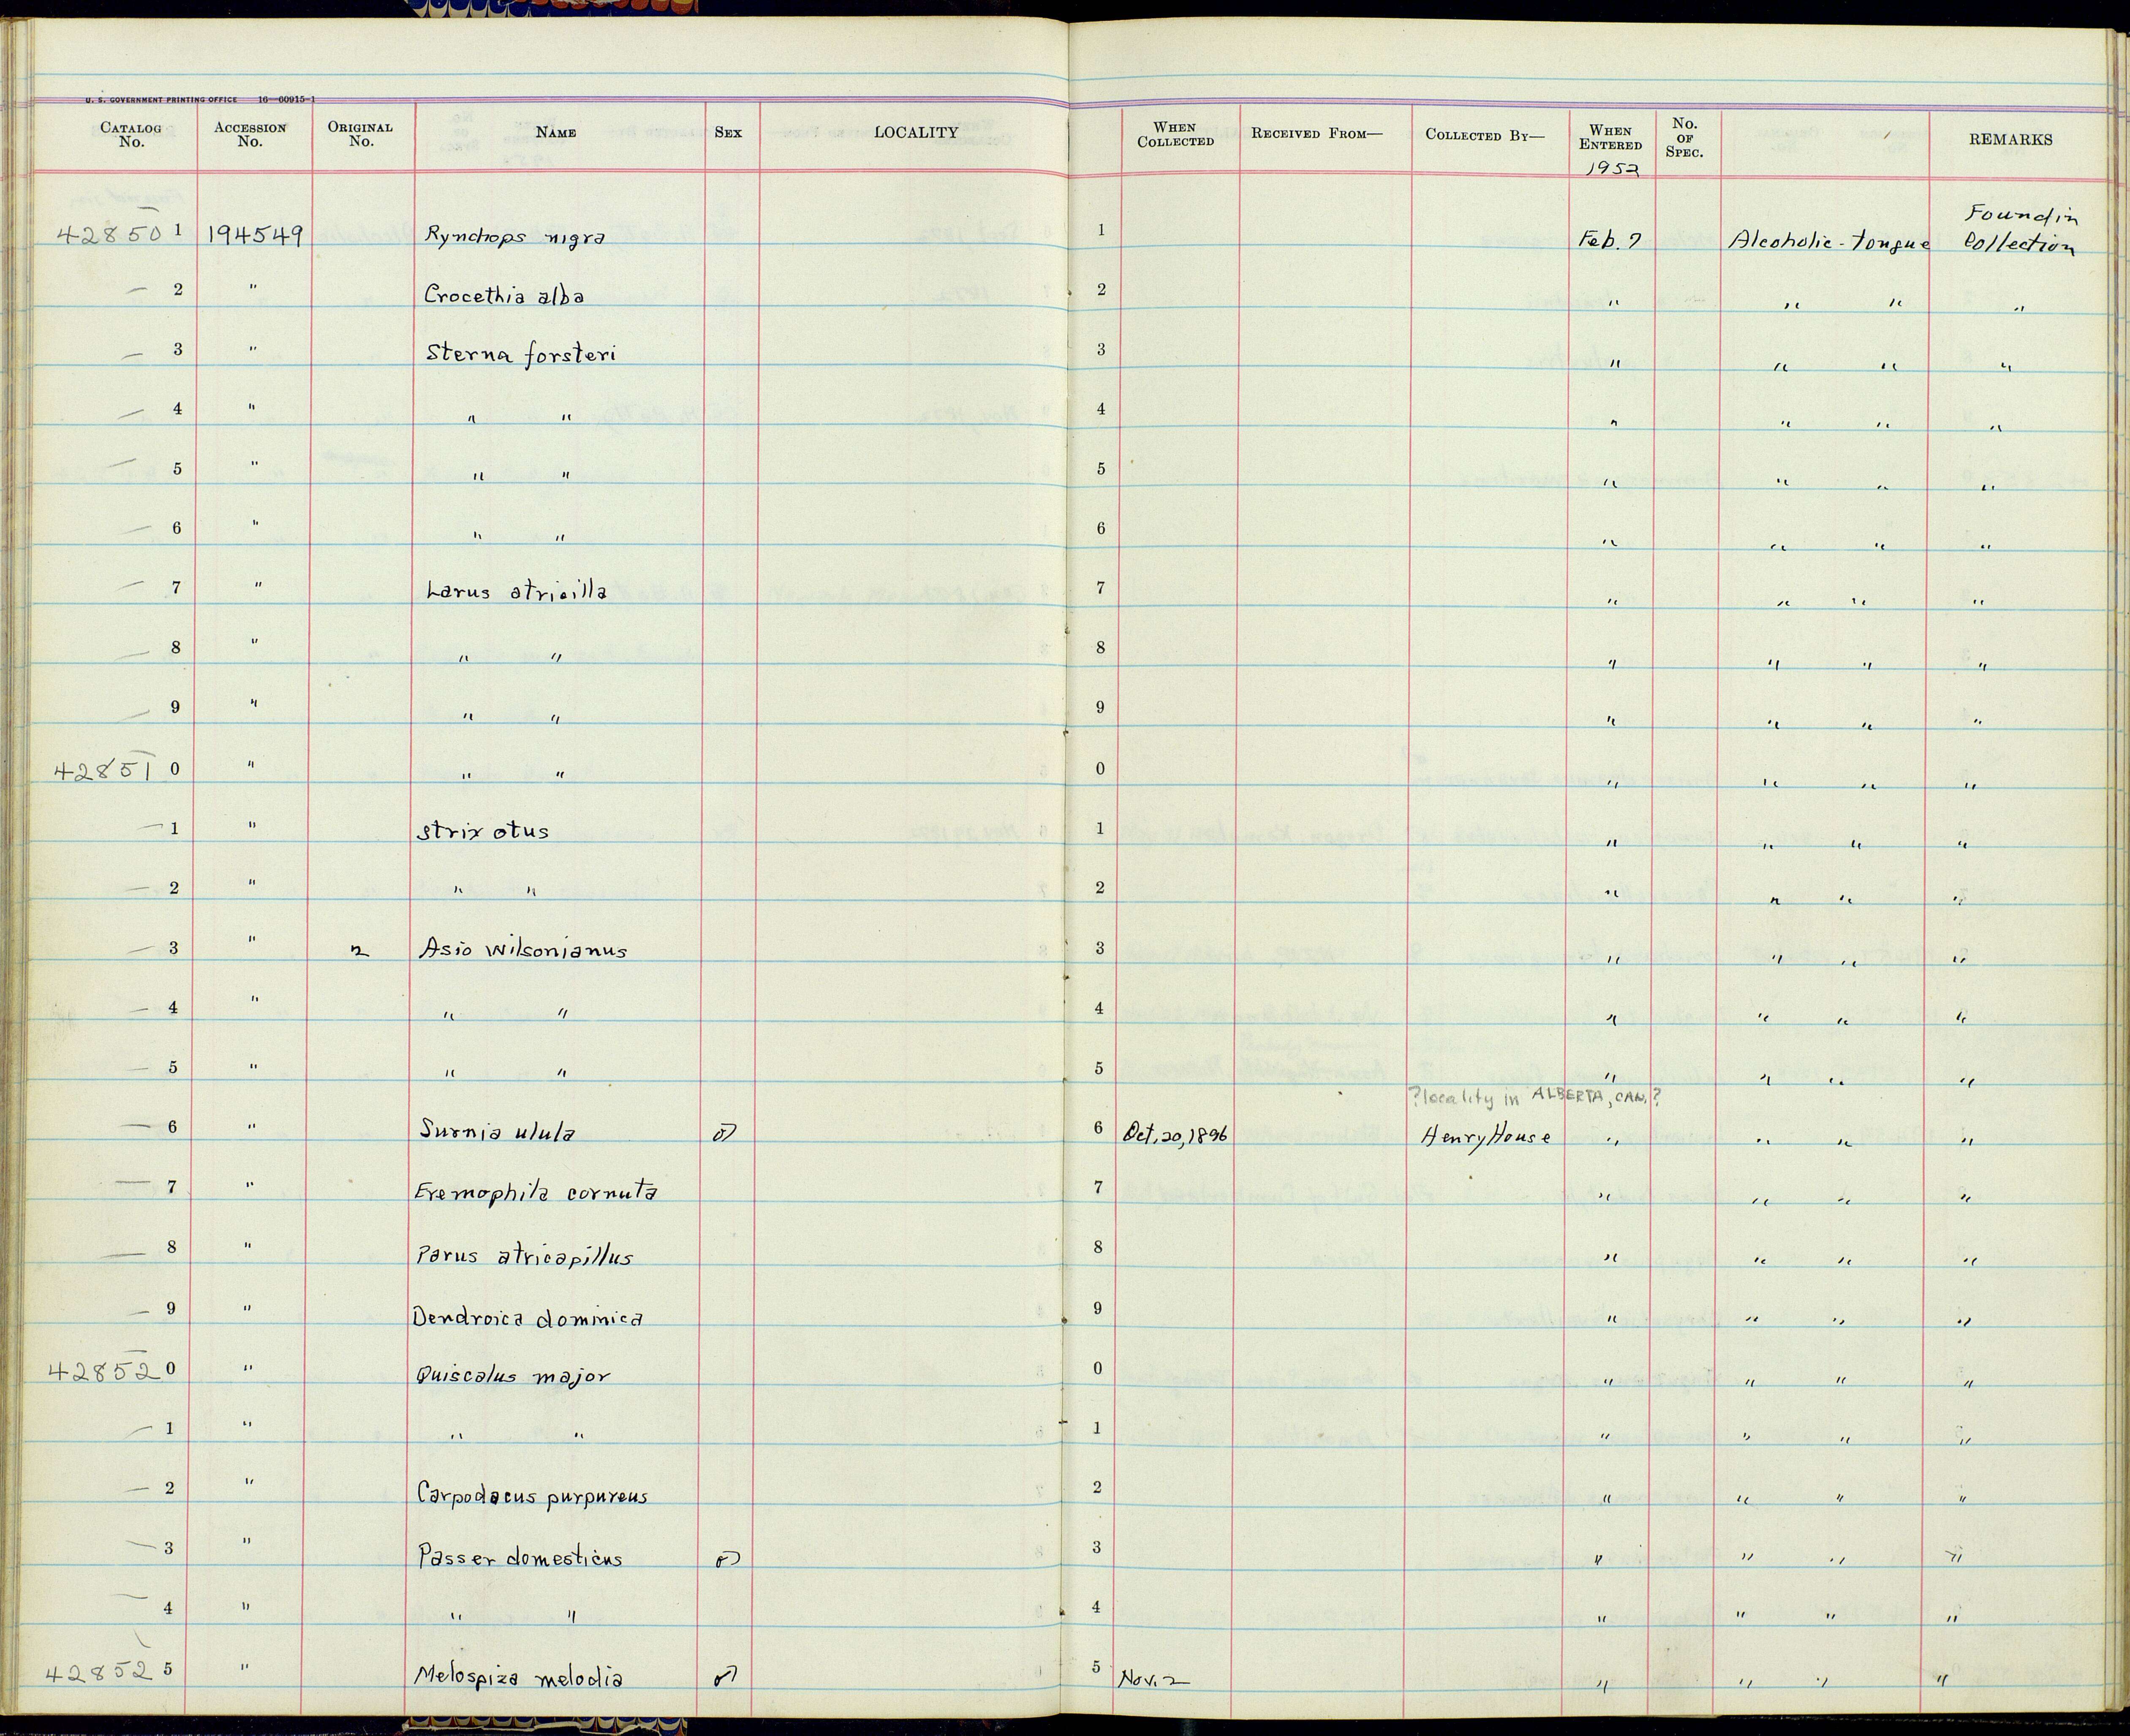 U. S. GOVERNMENT PRINTING OFFICE 16—60915-1
CATALOG No. ACCESSION No. ORIGINAL No. NAME SEX LOCALITY WHEN COLLECTED RECEIVED FROM— COLLECTED BY— WHEN ENTERED No. OF SPEC. REMARKS
1952
428501 194549 Rynchops nigra 1 Feb. 7 Alcoholic-tongue Found in Collection
— 2 " Crocethia alba 2 " " " "
— 3 " Sterna forsteri 3 " " " "
— 4 " " " 4 " " " "
— 5 " " " 5 " " " "
— 6 " " " 6 " " " "
— 7 " Larus atricilla 7 " " " "
— 8 " " " 8 " " " "
— 9 " " " 9 " " " "
428510 " " " 0 " " " "
— 1 " Strix otus 1 " " " "
— 2 " " " 2 " " " "
— 3 " 2 Asio wilsonianus 3 " " " "
— 4 " " " 4 " " " "
— 5 " " " 5 " " " "
?locality in ALBERTA, CAN.?
— 6 " Surnia ulula ♂ 6 Oct. 20, 1896 Henry House " " " "
— 7 " Eremophila cornuta 7 " " " "
— 8 " Parus atricapillus 8 " " " "
— 9 " Dendroica dominica 9 " " " "
428520 " Quiscalus major 0 " " " "
— 1 " " " 1 " " " "
— 2 " Carpodacus purpureus 2 " " " "
— 3 " Passer domesticus ♂ 3 " " " "
— 4 " " " 4 " " " "
428525 " Melospiza melodia ♂ 5 Nov. 2 " " " "